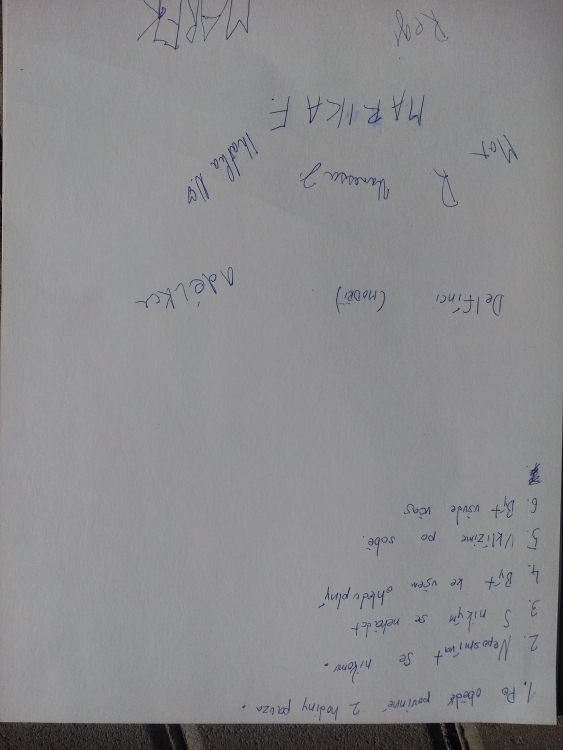 1. Po obědě povinné 2 hodiny pauza.
2. Neposmívat se nikomu.
3. S nikým se nehádat
4. Být ke všem ohleduplný
5. Uklízíme po sobě.
6. Být všude včas
Adélka
(modří)
Delfínci
Vanessa J.
R
Mat
MARIKA F.
MAREK